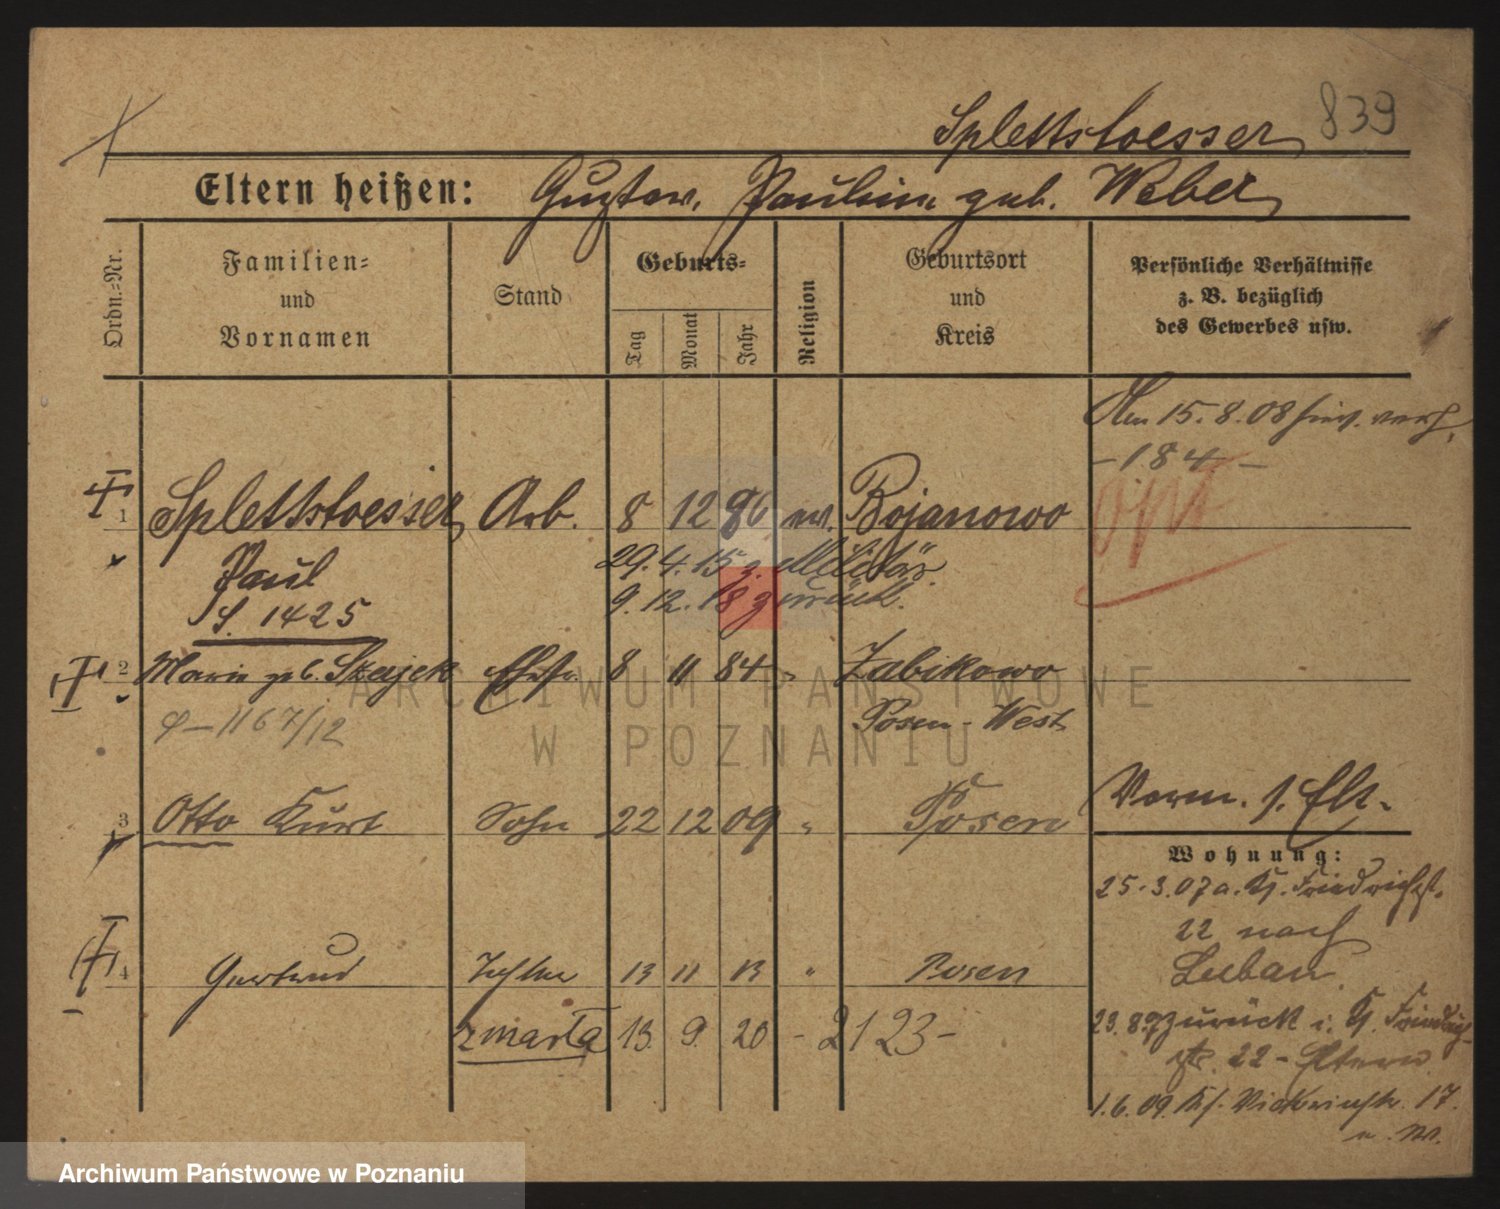 Splettstoesser 839
Eltern heißen: Gustav, Paulin geb. Weber
Ordn.-Nr.
Familien- und Vornamen
Stand
Geburts-
Tag Monat Jahr
Religion
Geburtsort und Kreis
Persönliche Verhältnisse
z. B. bezüglich
des Gewerbes usw.
Am 15.8.08 verh.
- 184 -
1 Splettstoesser Arb. 8 12 86 ev. Bojanowo
29.4.15 z. Militär
Paul 9.12.18 zurück.
S. 1425
2 Marie geb. Skajek Ehefr. 8 11 84 " Zabikowo
1167/12 Posen-West
Vorm. s. Elt.
3 Otto Kurt Sohn 22 12 09 " Posen
Wohnung:
25.3.07 a. Kl. Friedrichst.
22 nach
Luban
4 Gertrud Tochter 13 11 13 " Posen
23.8.07 zurück i. Kl. Friedrich-
zmarła 13. 9. 20 - 2123 -
str. 22 - Eltern
1.6.09 17.
ARCHIWUM PAŃSTWOWE
W POZNANIU
Archiwum Państwowe w Poznaniu